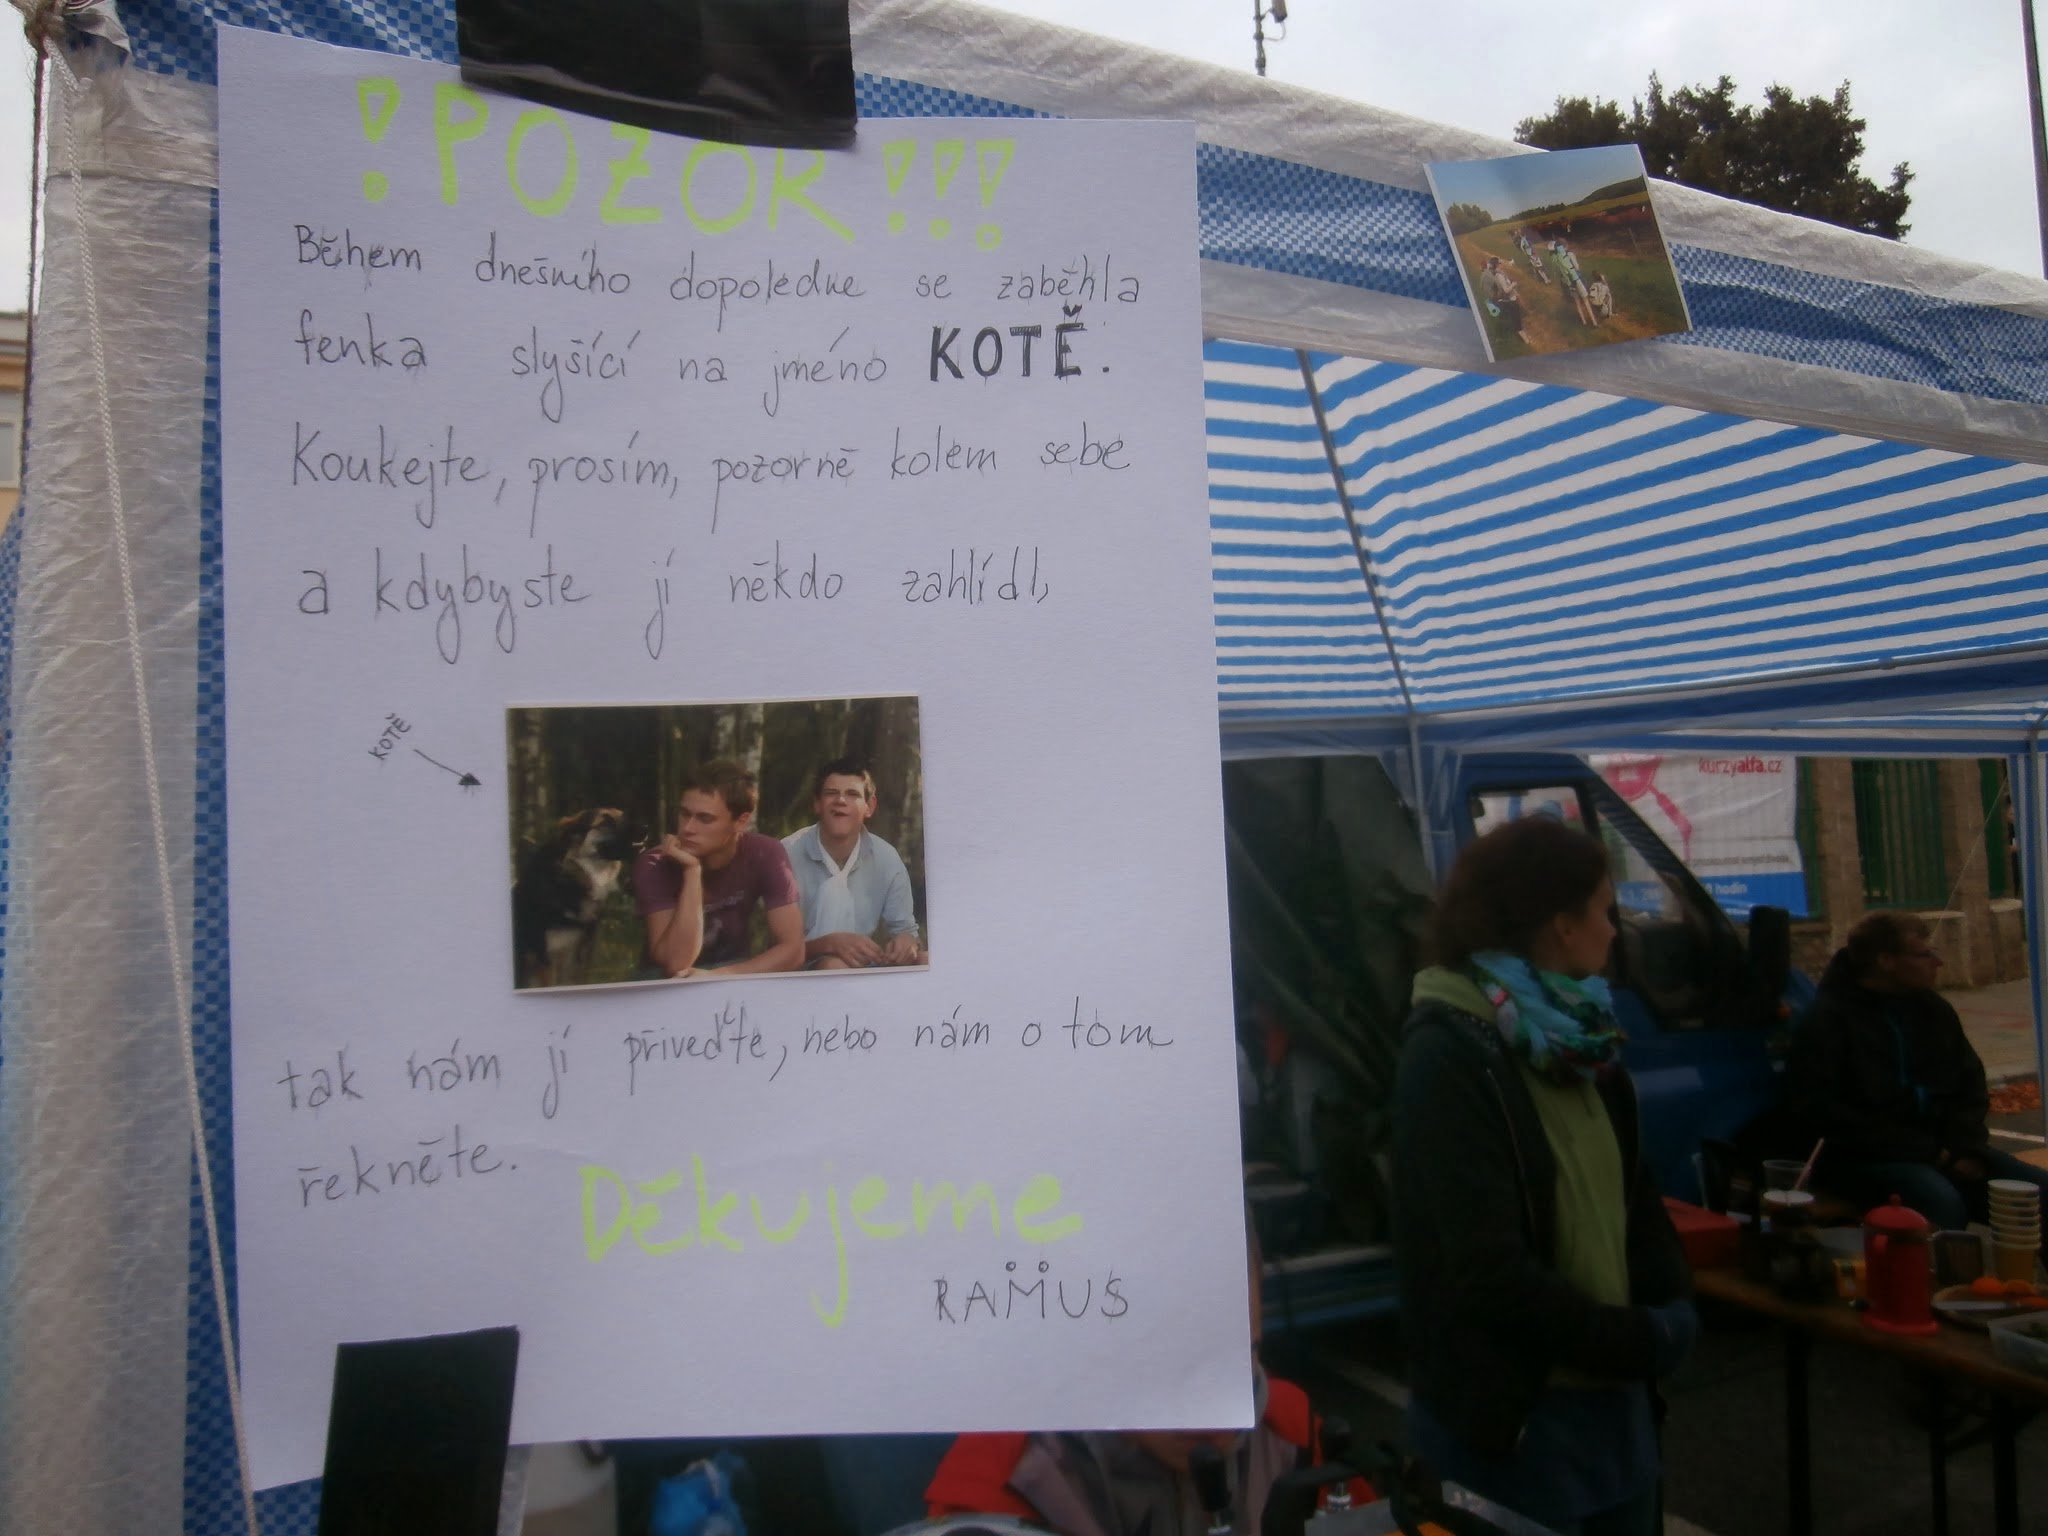 !POZOR!!!
Během dnešního dopoledne se zaběhla
fenka slyšící na jméno KOTĚ.
Koukejte, prosím, pozorně kolem sebe
a kdybyste jí někdo zahlídl,
KOTĚ
tak nám jí přiveďte, nebo nám o tom
řekněte.
Děkujeme
RAMUS
kurzyalfa.cz
hodin